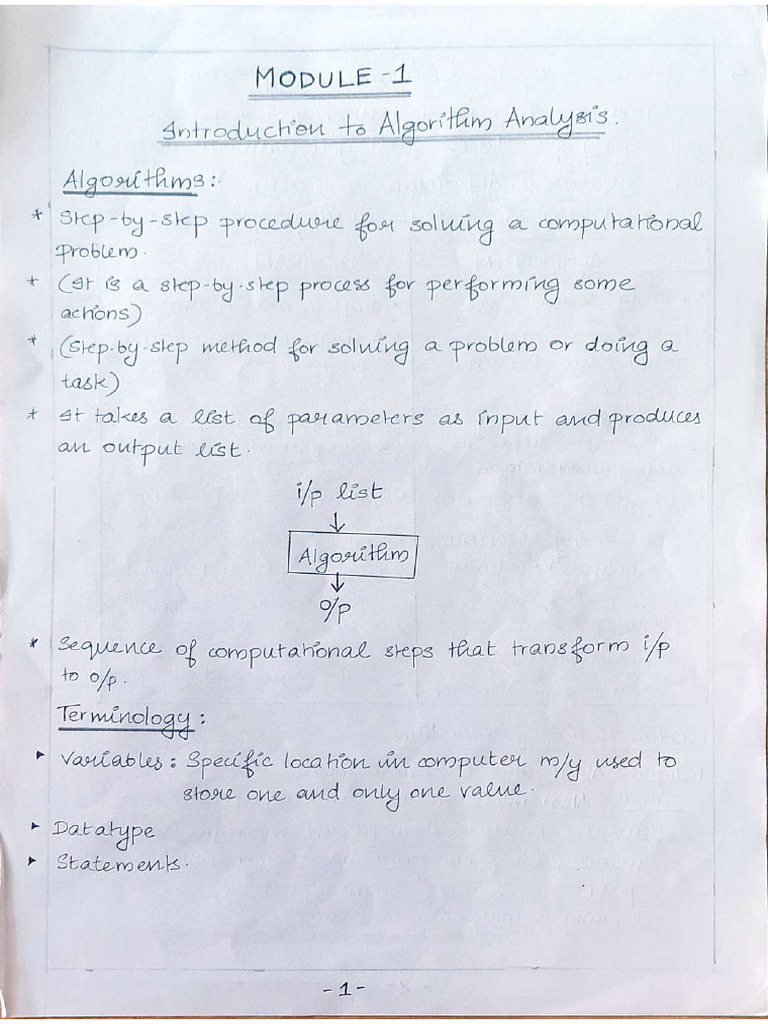 MODULE - 1
Introduction to Algorithm Analysis.
Algorithms:
* Step-by-step procedure for solving a computational
problem.
* (It is a step-by-step process for performing some
actions)
* (Step-by-step method for solving a problem or doing a
task)
* It takes a list of parameters as input and produces
an output list.
i/p list
↓
Algorithm
↓
o/p
* Sequence of computational steps that transform i/p
to o/p.
Terminology:
▸ Variables: Specific location in computer m/y used to
store one and only one value.
▸ Datatype
▸ Statements.
- 1 -